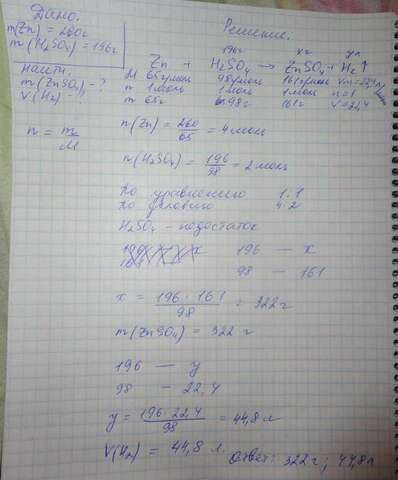 Дано:
m(Zn) = 260г
m(H₂SO₄) = 196г
Найти:
m(ZnSO₄) - ?
V(H₂) - ?
n = m/M
Решение.
196г xг yл
Zn + H₂SO₄ → ZnSO₄ + H₂↑
M 65г/моль 98г/моль 161г/моль Vm=22,4л/моль
n 1моль 1моль 1моль n=1
m 65г 98г 161г V=22,4
n(Zn) = 260/65 = 4 моль
n(H₂SO₄) = 196/98 = 2 моль
По уравнению 1:1
По условию 4:2
H₂SO₄ - недостаток
196 — x
98 — 161
x = 196·161/98 = 322г
m(ZnSO₄) = 322 г
196 — y
98 — 22,4
y = 196·22,4/98 = 44,8 л
V(H₂) = 44,8 л.
Ответ: 322г; 44,8л